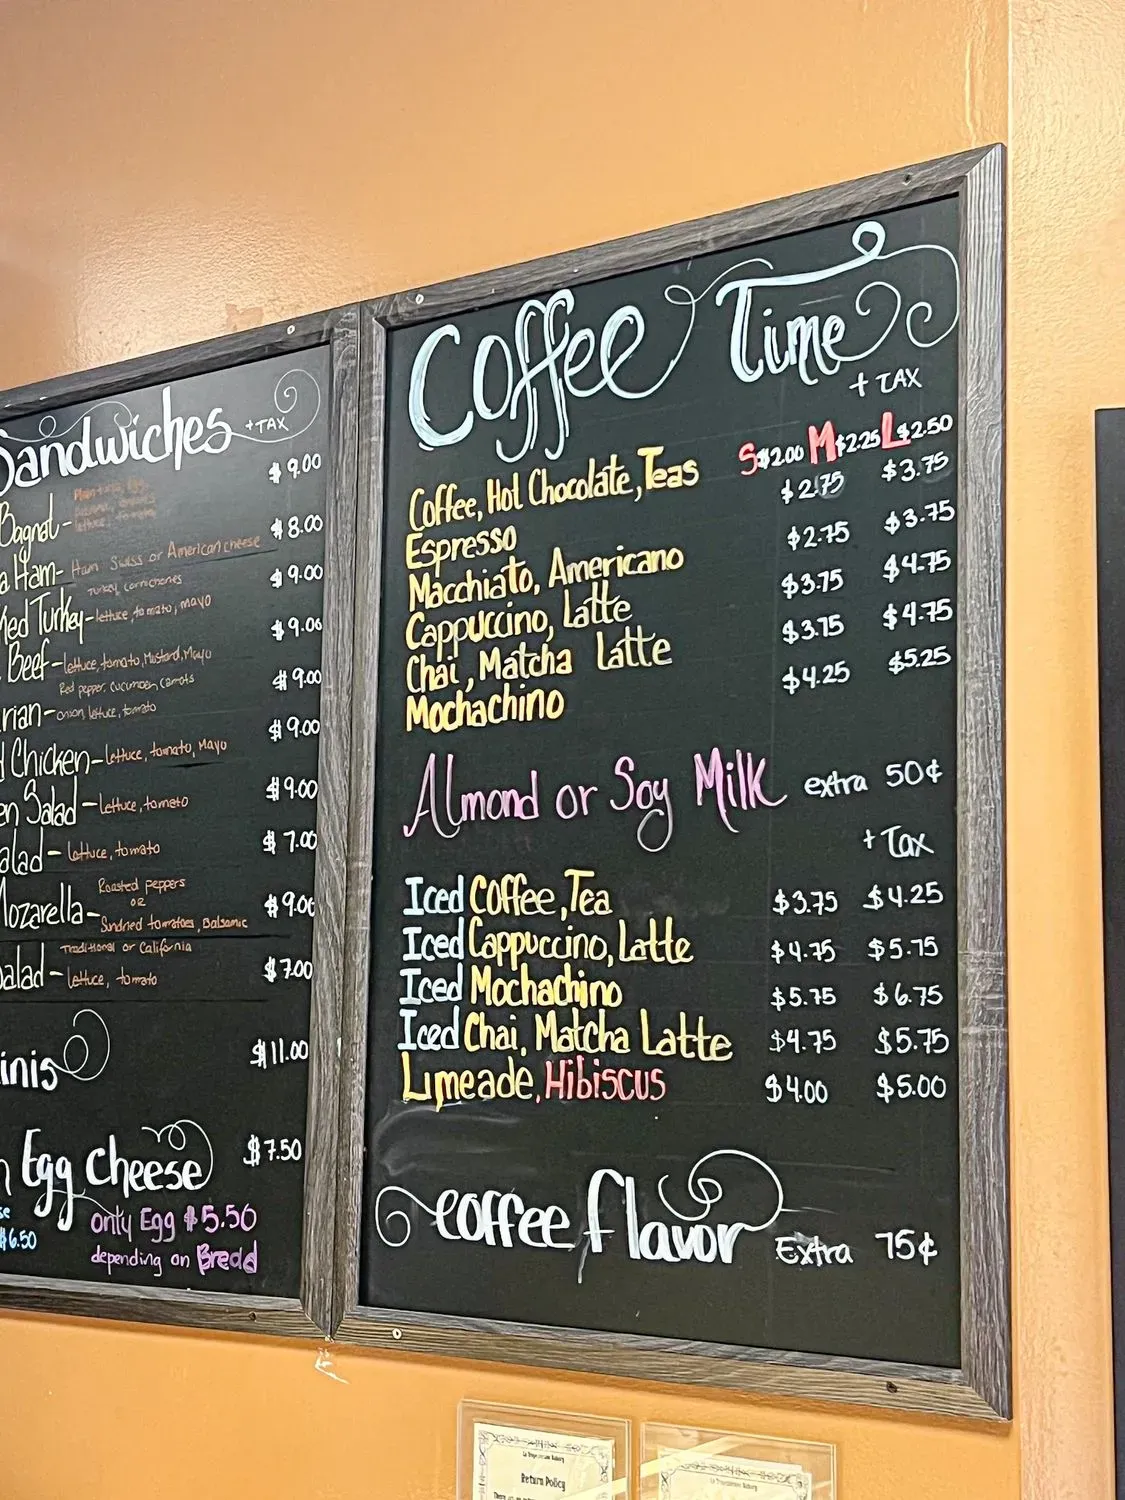 Sandwiches +TAX
Bagnat- $9.00
lettuce, tomato
a Ham- Ham Swiss or American cheese $8.00
Turkey, cornichones
Turkey- lettuce, tomato, mayo $9.00
Beef- lettuce, tomato, Mustard, Mayo $9.00
Red pepper, cucumber, carrots
rian- onion, lettuce, tomato $9.00
Chicken- lettuce, tomato, Mayo $9.00
en Salad- lettuce, tomato $9.00
alad- lettuce, tomato $7.00
Roasted peppers
OR
Mozarella- Sundried tomatoes, Balsamic $9.00
Traditional or California
alad- lettuce, tomato $7.00
inis $11.00
Egg Cheese $7.50
$6.50
only Egg $5.50
depending on Bread
Coffee Time
+ TAX
Coffee, Hot Chocolate, Teas S $2.00 M $2.25 L $2.50
Espresso $2.75 $3.75
Macchiato, Americano $2.75 $3.75
Cappuccino, Latte $3.75 $4.75
Chai, Matcha Latte $3.75 $4.75
Mochachino $4.25 $5.25
Almond or Soy Milk extra 50¢
+ Tax
Iced Coffee, Tea $3.75 $4.25
Iced Cappuccino, Latte $4.75 $5.75
Iced Mochachino $5.75 $6.75
Iced Chai, Matcha Latte $4.75 $5.75
Limeade, Hibiscus $4.00 $5.00
coffee flavor Extra 75¢
Return Policy